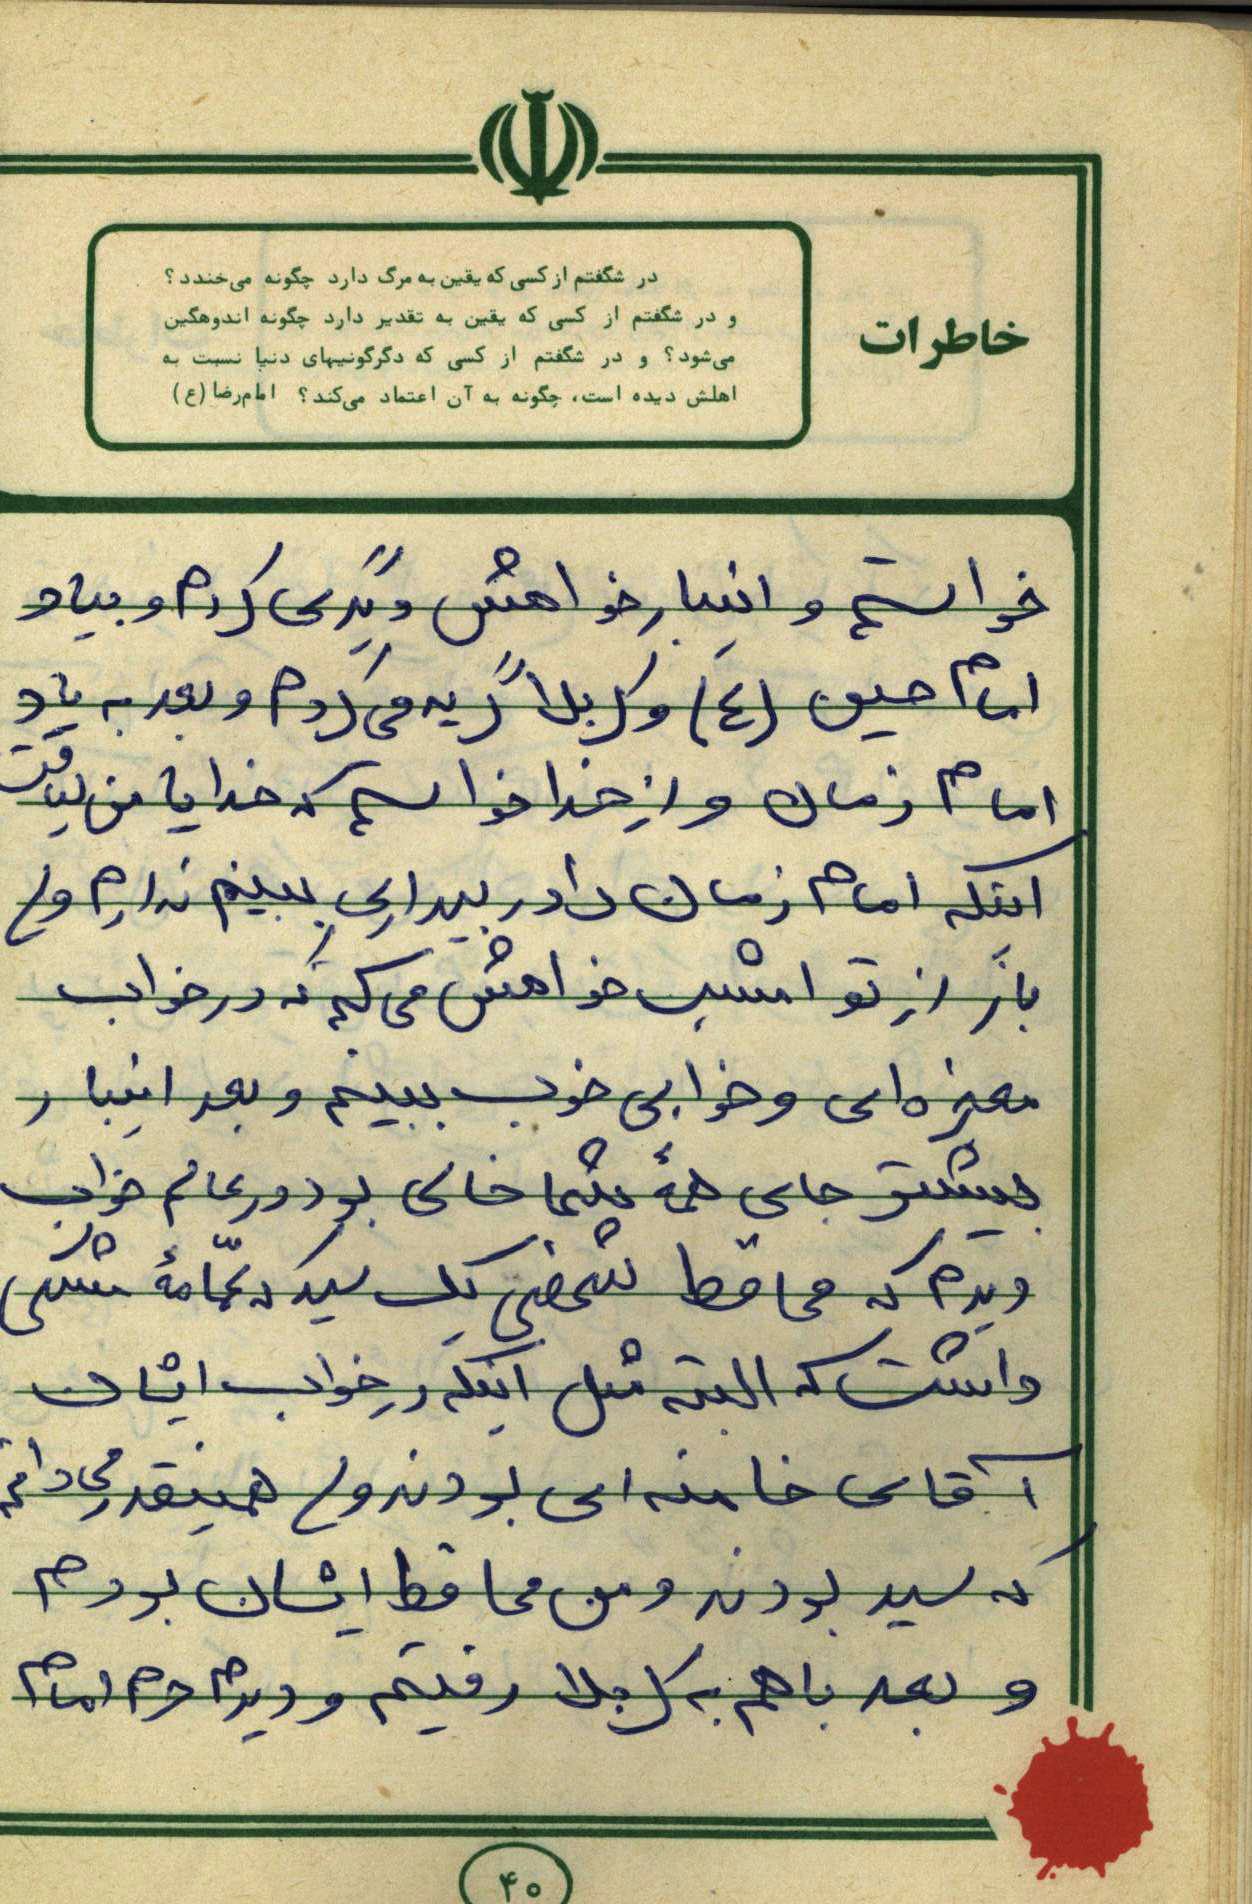 در شگفتم از کسی که یقین به مرگ دارد چگونه می‌خندد؟
و در شگفتم از کسی که یقین به تقدیر دارد چگونه اندوهگین
می‌شود؟ و در شگفتم از کسی که دگرگونیهای دنیا نسبت به
اهلش دیده است، چگونه به آن اعتماد می‌کند؟ امام‌رضا (ع)
خاطرات
خواستم و اینبار خواهش دیگری کردم و بیاد
امام حسین (ع) و کربلا گریه می‌کردم و بعد به یاد
امام زمان و از خدا خواستم که خدایا من لیاقت
اینکه امام زمان را در بیداری ببینم ندارم ولی
باز از تو امشب خواهش می‌کنم که در خواب
معجزه‌ای و خوابی خوب ببینم و بعد اینبار
بیشتر جای همهٔ شما خالی بود در عالم خواب
دیدم که محافظ شخصی یک سید که عمّامهٔ مشکی
داشت که البته مثل اینکه در خواب ایشان
آقای خامنه‌ای بودند ولی همینقدر می‌دانم
که سید بودند و من محافظ ایشان بودم
و بعد باهم به کربلا رفتیم و دیدم حرم امام
۴۰